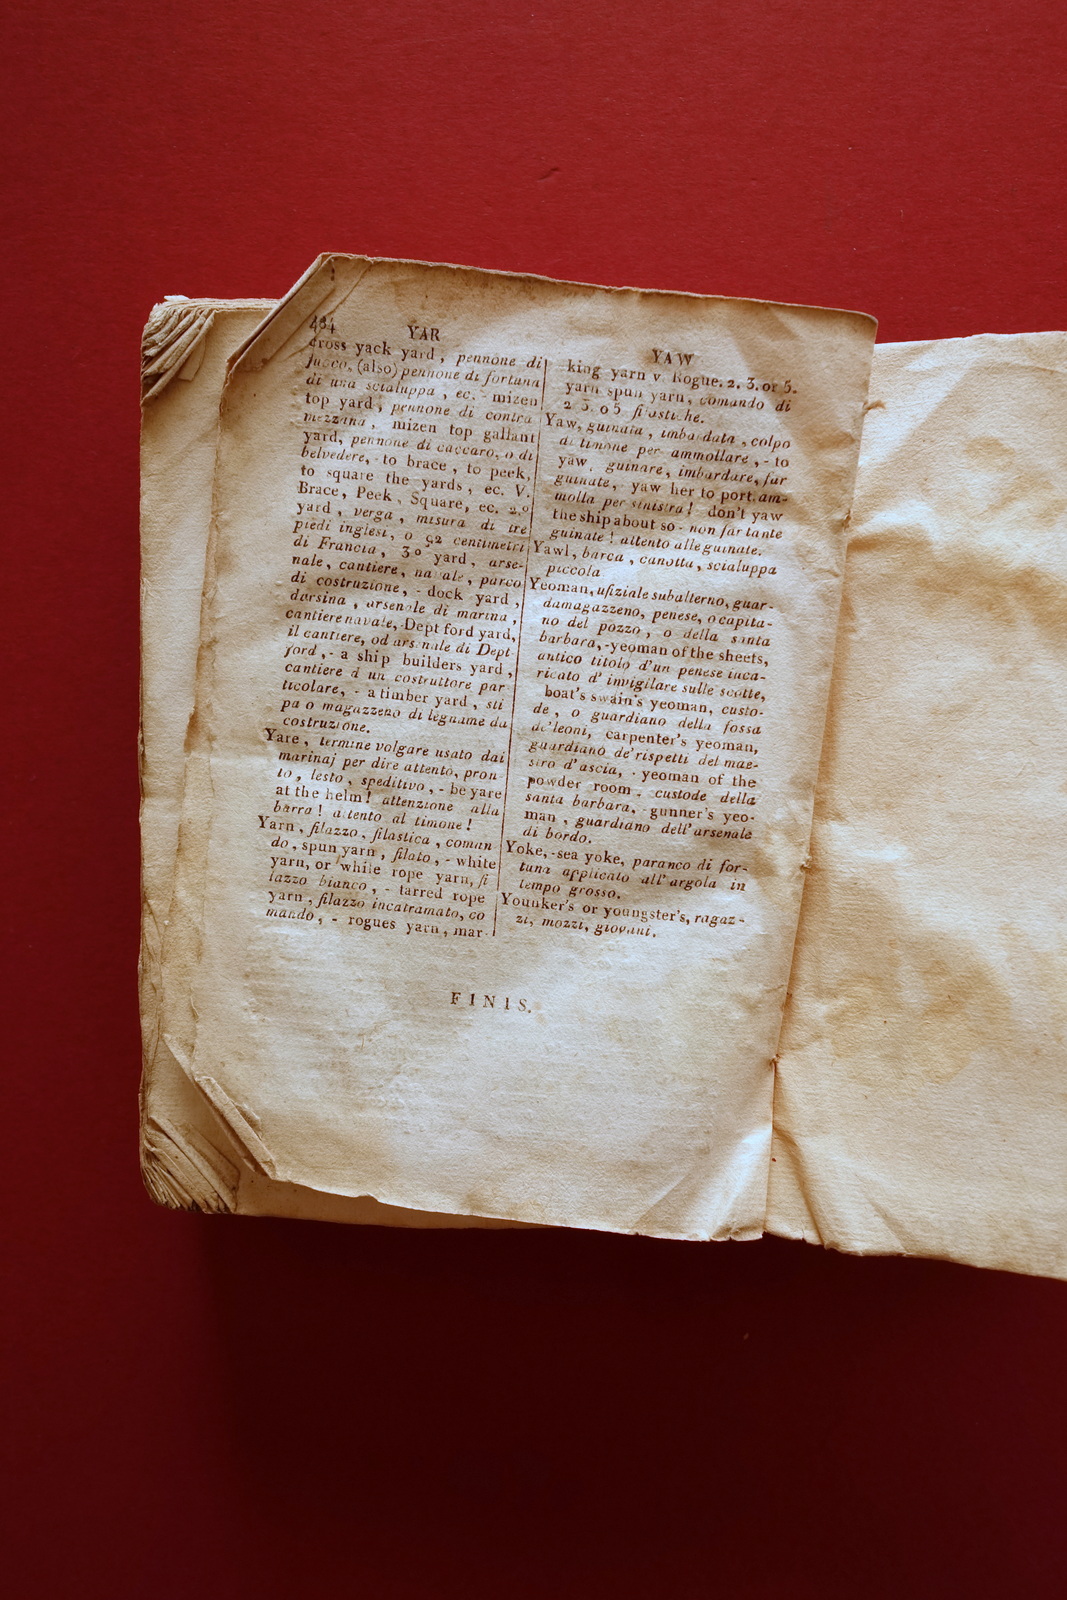 484 YAR YAW
cross yack yard, pennone di
fuoco, (also) pennone di fortuna
di una scialuppa, ec. - mizen
top yard, pennone di contra
mezzana, mizen top gallant
yard, pennone di caccaro, o di
belvedere, - to brace, to peek,
to square the yards, ec. V.
Brace, Peek, Square, ec. 2.º
yard, verga, misura di tre
piedi inglesi, o 92 centimetri
di Francia, 3º yard, arse-
nale, cantiere, navale, parco
di costruzione, - dock yard,
darsina, arsenale di marina,
cantiere navale, - Dept ford yard,
il cantiere, od arsenale di Dept
ford, - a ship builders yard,
cantiere d un costruttore par
ticolare, - a timber yard, sti
pa o magazzeno di legname da
costruzione.
Yare, termine volgare usato dai
marinaj per dire attento, pron-
to, lesto, speditivo, - be yare
at the helm! attenzione alla
barra! attento al timone!
Yarn, filazzo, filastica, coman
do, spun yarn, filato, - white
yarn, or white rope yarn, fi
lazzo bianco, - tarred rope
yarn, filazzo incatramato, co
mando, - rogues yarn, mar-
king yarn v. Rogue. 2. 3. or 5.
yarn spun yarn, comando di
2 3. o 5 filastiche.
Yaw, guinata, imbardata, colpo
di timone per ammollare, - to
yaw, guinare, imbardare, far
guinate, yaw her to port, am-
molla per sinistra! don't yaw
the ship about so - non far tante
guinate! attento alle guinate.
Yawl, barca, canotta, scialuppa
piccola
Yeoman, ufiziale subalterno, guar-
damagazzeno, penese, o capita-
no del pozzo, o della santa
barbara, - yeoman of the sheets,
antico titolo d'un penese inca-
ricato d'invigilare sulle scotte,
boat's swain's yeoman, custo-
de, o guardiano della fossa
de'leoni, carpenter's yeoman,
guardiano de'rispetti del mae-
stro d'ascia, - yeoman of the
powder room, custode della
santa barbara, - gunner's yeo-
man, guardiano dell'arsenale
di bordo.
Yoke, - sea yoke, paranco di for-
tuna applicato all'argola in
tempo grosso.
Younker's or youngster's, ragaz-
zi, mozzi, giovani.
FINIS.